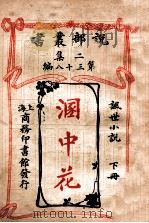 說部叢書
二集
第三十八編
世小說
下冊
溷中花
上海
商務印書館發行